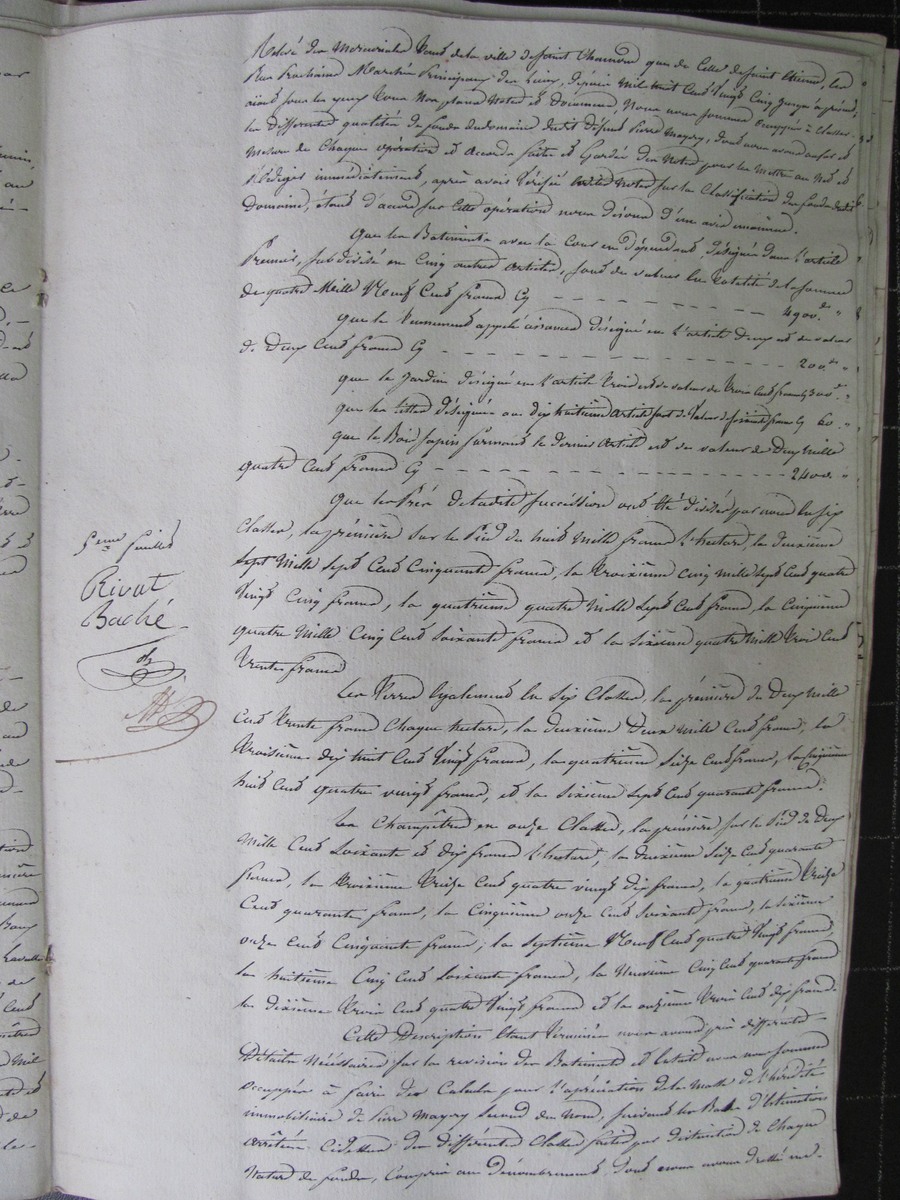 Relevé des Mercuriales tant de la ville de Saint Chamond que de Celle de Saint Etienne, les
Plus Prochains Marchés Principaux des Lieux, depuis Mil huit Cent Vingt Cinq jusqu'à présent,
nous nous sommes occuppés à classer
les differentes qualités de fonds du domaine dudit défunt Pierre Mayry, dont nous avons
Mesure de Chaque opération et Accords faite et Gardé des Notes pour les Mettre au Net et
Rédiger immédiatement, après avoir Vérifié notes sur la Classification des fonds dudit
Domaine, étant d'accord sur Cette opération nous disons d'une avis unanime.
Que les Batiments avec la Cour en dépendant désigné dans l'article
Premier, subdivisé en Cinq autres Articles, sont de valeur en totalité de la somme
de quatre Mille Neuf Cent francs Cy - - - 4900. "
que le Tennement appelé aisances désigné en l'article Deux est de valeur
de Deux Cent francs Cy - - - 200. "
que le Jardin désigné en l'article Trois est de valeur de Trois Cent francs Cy 300. "
que les désignées au dix huitième Article sont de valeur de soixante francs Cy 60. "
que le Bois Sapin formant le dernier Article est de valeur de Deux Mille
quatre Cent francs Cy - - - 2400. "
Que les Prés de ladite Succéssion ont été divisés par nous en six
Classes, la première sur le Pied de huit Mille francs l'hectare, la deuxième
Sept Mille Sept Cent Cinquante francs, la Troixième Cinq Mille Sept Cent quatre
Vingt Cinq francs, la quatrième quatre Mille Sept Cent francs, la Cinquième
quatre Mille Cinq Cent soixante francs et la Sixième quatre Mille Trois Cent
Trente francs
Les Terres Egalement en Six Classes, la première de Deux Mille
Cent Trente francs Chaque hectare, la deuxième Deux Mille Cent francs, la
Troisième dix huit Cent Vingt francs, la quatrième Seize Cent francs, la Cinquième
huit Cent quatre vingt francs, et la Sixième Sept Cent quarante francs.
Les Champêtres en onze Classes, la première sur le Pied de Deux
Mille Cent Soixante et dix francs l'hectare, la deuxième Seize Cent quarante
francs, la Troixième Treize Cent quatre vingt dix francs, la quatrième Treize
Cent quarante francs, la Cinquième onze Cent Soixante francs, la Sixième
onze Cent Cinquante francs, la Septième Neuf Cent quatre Vingt francs,
la huitième Cinq Cent Soixante francs, la Neuvième Cinq Cent quarante francs
la dixième Trois Cent quatre Vingt francs et la onzième Trois Cent dix francs.
Cette Description Etant Terminée nous avons pris différents
Détails Nécéssaires sur la revision des Batiments et nous nous sommes
occuppés à faire des Calculs pour l'apréciation de la Masse de l'hérédité
immobiliaire de Pierre Mayry Second du Nom, suivant les Bases d'Estimation
arrêtées Cidessus des différentes Classes faites par distinction de Chaque
Nature de fonds, Compris au Dénombrement dont nous avons dressé un
5eme feuillet
Rivat
Baché